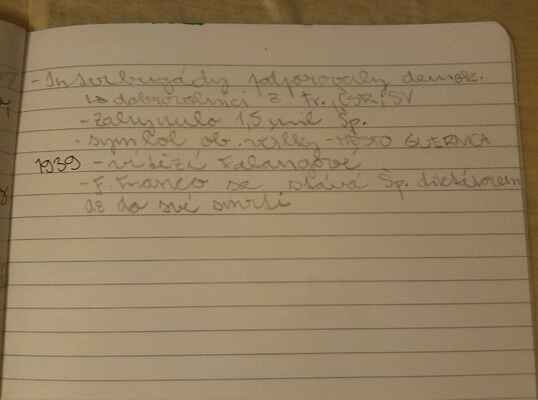 - Interbrigády podporovaly demok.
↳ dobrovolníci z Fr., ČSR, SV
- zahynulo 1,5 mil Šp.
- symbol ob. války - MĚSTO GUERNICA
1939 - vítězí Falangové
- F. Franco se stává Šp. diktátorem
až do své smrti